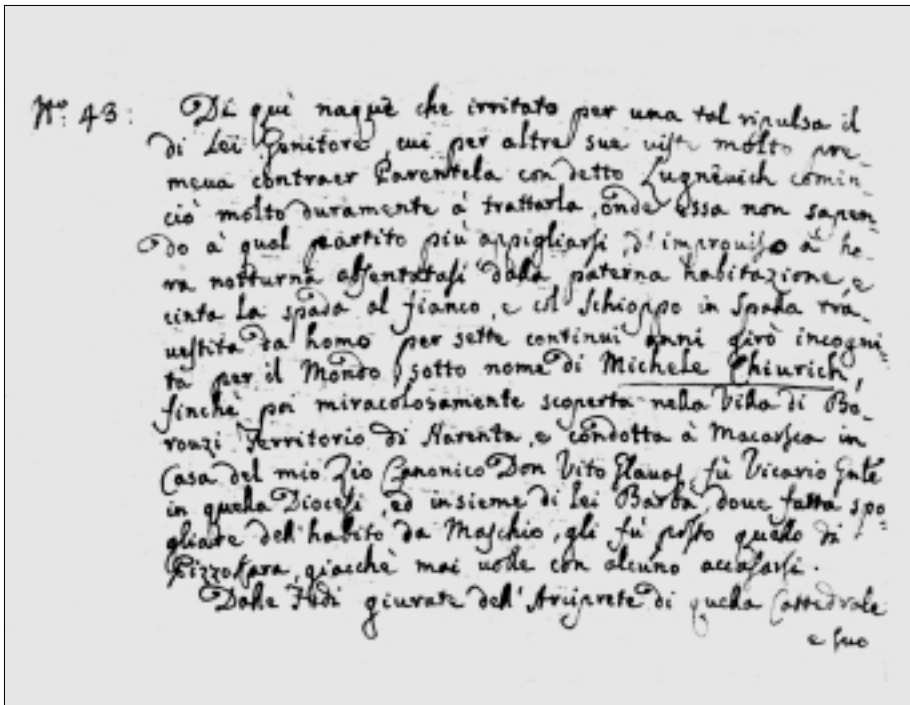 No: 43: Di quì naquè che irritato per una tal ripulsa il
di Lei Genitore, cui per altre sue viste molto pre-
meua contraer Parentela con detto Lugnêuich comin-
ciò molto duramente à trattarla, onde essa non sapen-
do à qual partito più appigliarsi, d'improuiso à ho-
ra notturna assentatasi dalla paterna habitazione, e
cinta la spada al fianco, e col schioppo in spalla tra-
uestita da homo per sette continui anni girò incogni-
ta per il Mondo, sotto nome di Michele Chiurich,
finchè poi miracolosamente scoperta nella Villa di Bo-
rouzi Territorio di Narenta, e condotta à Macarsca in
Casa del mio Zio Canonico Don Vito Glauas, fù Vicario Gnle
in quella Diocesi, ed insieme di lei Barba, doue fatta spo=
gliare dell'habito da Maschio, gli fù posto quello di
Pizzokara, giacchè mai uolle con alcuno accasarsi.
Dalle Fedi giurate dell'Arciprete di quella Cattedrale
e suo